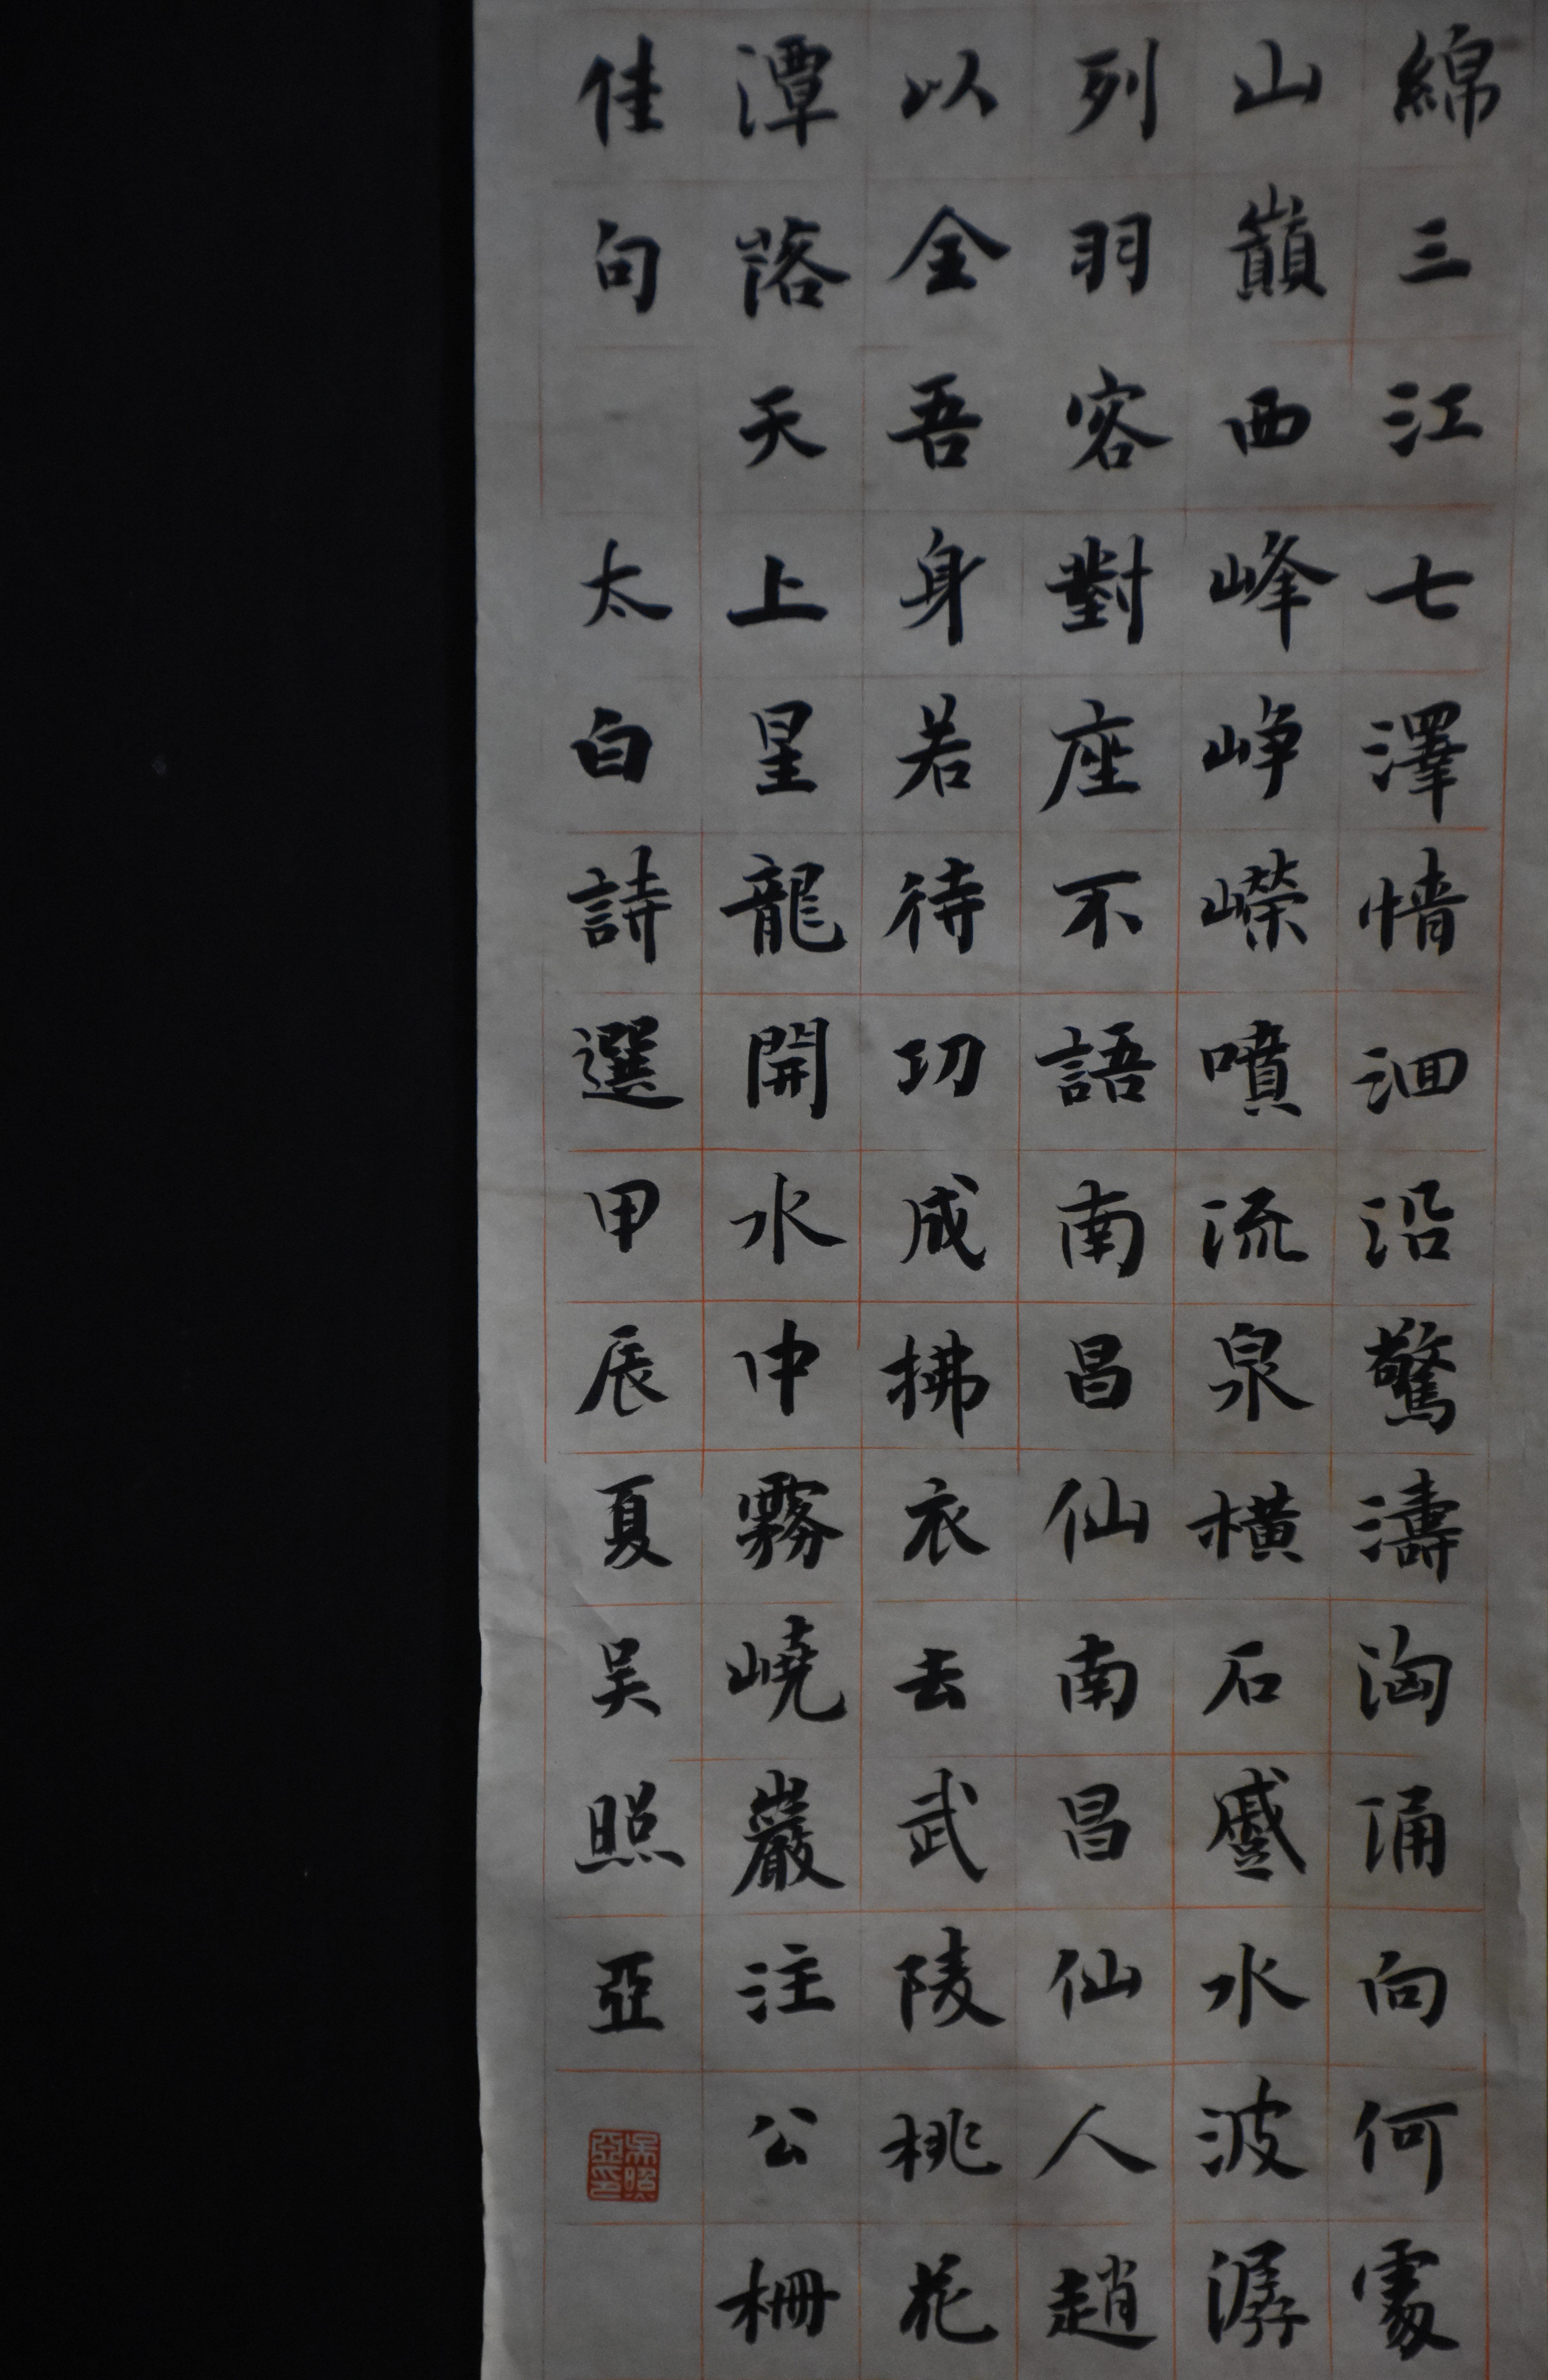 綿三江七澤情洄沿驚濤洶涌向何處
山巔西峰崢嶸噴流泉橫石蹙水波潺
列羽客對座不語南昌仙南昌仙人趙
以全吾身若待功成拂衣去武陵桃花
潭落天上星龍開水中霧嶢巖注公柵
佳句 太白詩選甲辰夏吴照亞
吳照亞印